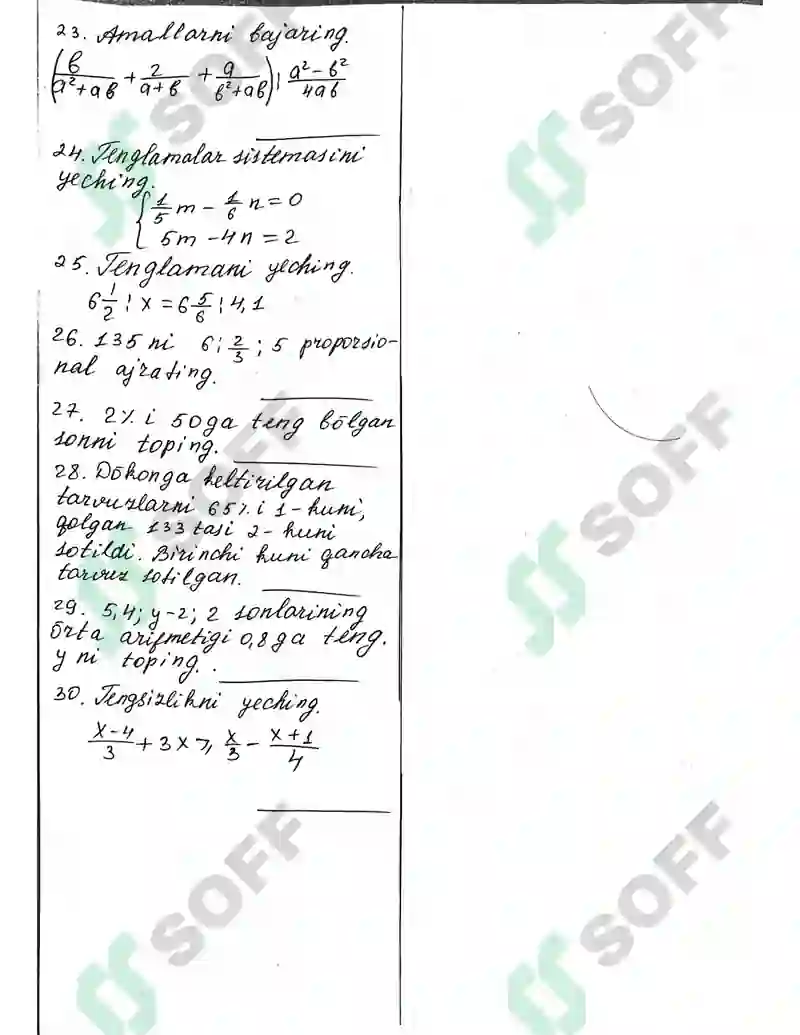 23. Amallarni bajaring.
(b/(a²+ab) + 2/(a+b) + a/(b²+ab)) : (a²-b²)/4ab
24. Tenglamalar sistemasini
yeching.
{ 1/5 m - 1/6 n = 0
5m - 4n = 2
25. Tenglamani yeching.
6 1/2 : x = 6 5/6 : 4,1
26. 135 ni 6; 2/3; 5 proporsio-
nal ajrating.
27. 2% i 50ga teng bõlgan
sonni toping.
28. Dõkonga keltirilgan
tarvuzlarni 65% i 1-kuni,
qolgan 133 tasi 2-kuni
sotildi. Birinchi kuni qancha
tarvuz sotilgan.
29. 5,4; y-2; 2 sonlarining
õrta arifmetigi 0,8 ga teng.
y ni toping.
30. Tengsizlikni yeching.
(x-4)/3 + 3x ≥ x/3 - (x+1)/4
SOFF
SOFF
SOFF
SOFF
SOFF
SOFF